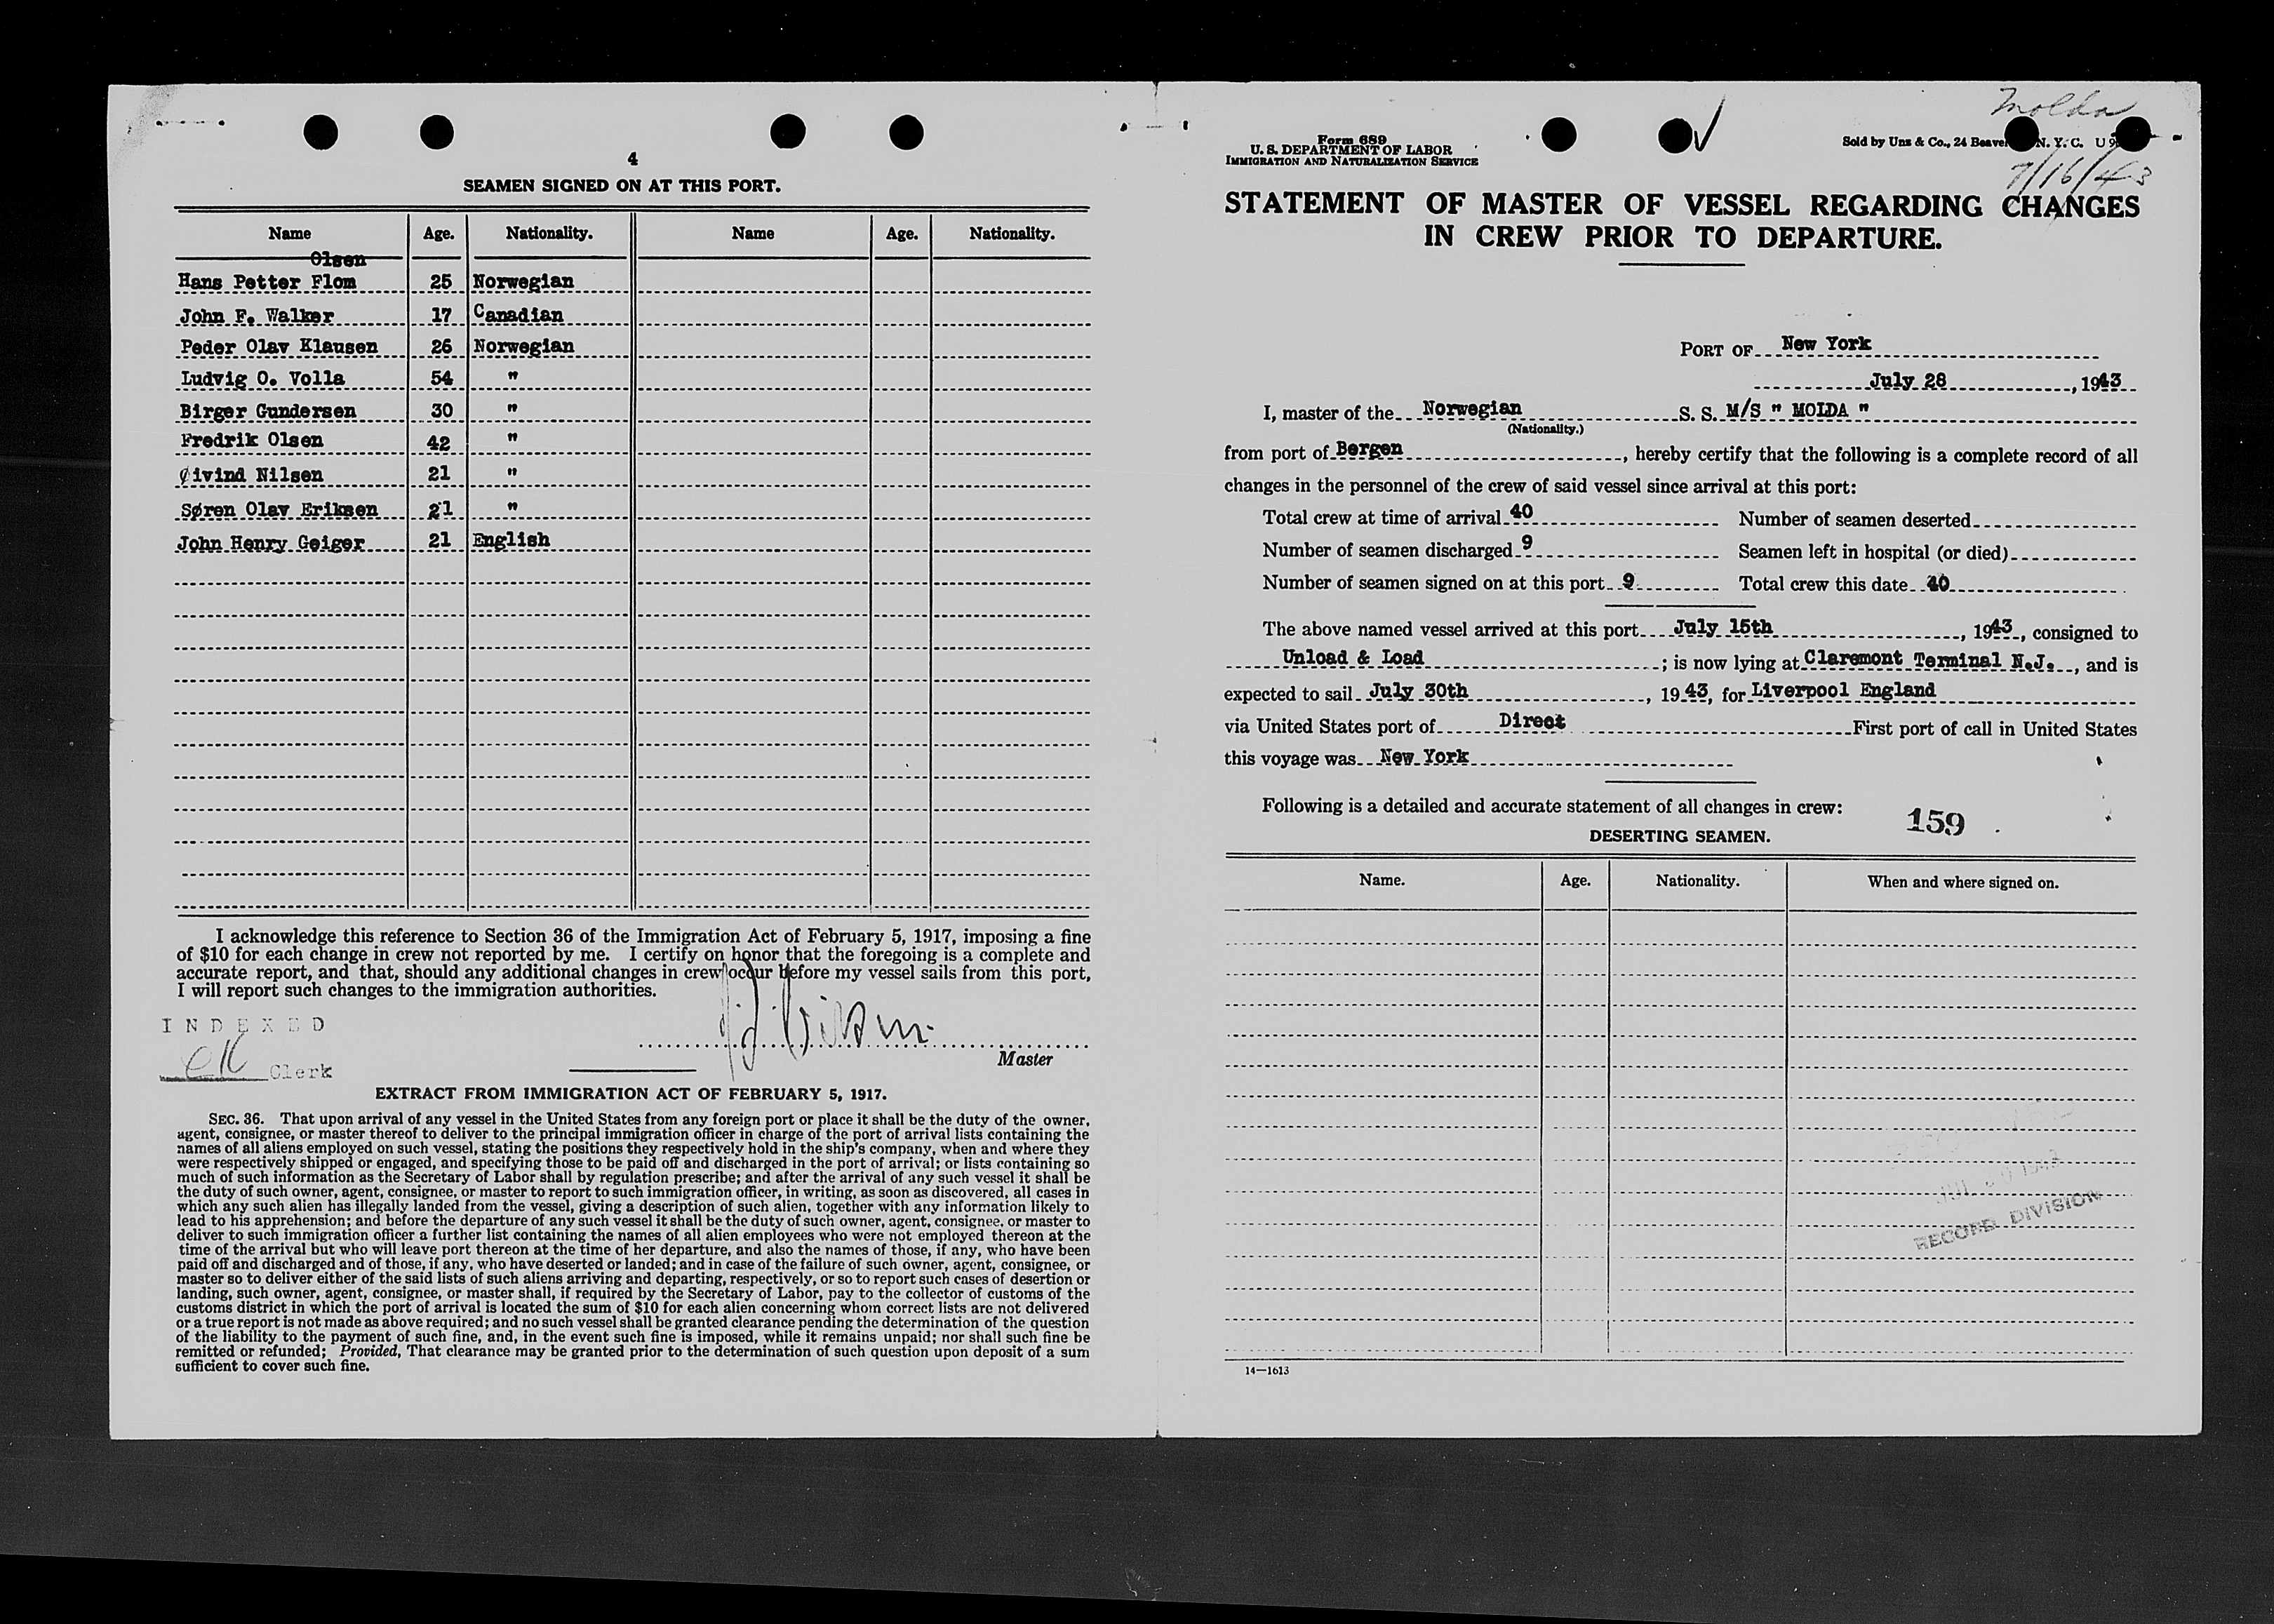 4
SEAMEN SIGNED ON AT THIS PORT.
Name Age. Nationality. Name Age. Nationality.
Olsen
Hans Petter Flom 25 Norwegian
John F. Walker 17 Canadian
Peder Olav Klausen 26 Norwegian
Ludvig O. Volla 54 "
Birger Gundersen 30 "
Fredrik Olsen 42 "
Øivind Nilsen 21 "
Søren Olav Eriksen 21 "
John Henry Geiger 21 English
I acknowledge this reference to Section 36 of the Immigration Act of February 5, 1917, imposing a fine
of $10 for each change in crew not reported by me. I certify on honor that the foregoing is a complete and
accurate report, and that, should any additional changes in crew occur before my vessel sails from this port,
I will report such changes to the immigration authorities.
INDEXED
Clerk
Master
EXTRACT FROM IMMIGRATION ACT OF FEBRUARY 5, 1917.
SEC. 36. That upon arrival of any vessel in the United States from any foreign port or place it shall be the duty of the owner,
agent, consignee, or master thereof to deliver to the principal immigration officer in charge of the port of arrival lists containing the
names of all aliens employed on such vessel, stating the positions they respectively hold in the ship's company, when and where they
were respectively shipped or engaged, and specifying those to be paid off and discharged in the port of arrival; or lists containing so
much of such information as the Secretary of Labor shall by regulation prescribe; and after the arrival of any such vessel it shall be
the duty of such owner, agent, consignee, or master to report to such immigration officer, in writing, as soon as discovered, all cases in
which any such alien has illegally landed from the vessel, giving a description of such alien, together with any information likely to
lead to his apprehension; and before the departure of any such vessel it shall be the duty of such owner, agent, consignee, or master to
deliver to such immigration officer a further list containing the names of all alien employees who were not employed thereon at the
time of the arrival but who will leave port thereon at the time of her departure, and also the names of those, if any, who have been
paid off and discharged and of those, if any, who have deserted or landed; and in case of the failure of such owner, agent, consignee, or
master so to deliver either of the said lists of such aliens arriving and departing, respectively, or so to report such cases of desertion or
landing, such owner, agent, consignee, or master shall, if required by the Secretary of Labor, pay to the collector of customs of the
customs district in which the port of arrival is located the sum of $10 for each alien concerning whom correct lists are not delivered
or a true report is not made as above required; and no such vessel shall be granted clearance pending the determination of the question
of the liability to the payment of such fine, and, in the event such fine is imposed, while it remains unpaid; nor shall such fine be
remitted or refunded; Provided, That clearance may be granted prior to the determination of such question upon deposit of a sum
sufficient to cover such fine.
Molda
Form 689
U. S. DEPARTMENT OF LABOR
IMMIGRATION AND NATURALIZATION SERVICE
Sold by Unz & Co., 24 Beaver N. Y. C. U 9
7/16/43
STATEMENT OF MASTER OF VESSEL REGARDING CHANGES
IN CREW PRIOR TO DEPARTURE.
PORT OF New York
July 28, 1943
I, master of the Norwegian S. S. M/S " MOLDA "
(Nationality.)
from port of Bergen, hereby certify that the following is a complete record of all
changes in the personnel of the crew of said vessel since arrival at this port:
Total crew at time of arrival 40 Number of seamen deserted
Number of seamen discharged 9 Seamen left in hospital (or died)
Number of seamen signed on at this port 9 Total crew this date 40
The above named vessel arrived at this port July 15th, 1943, consigned to
Unload & Load; is now lying at Claremont Terminal N.J., and is
expected to sail July 30th, 1943, for Liverpool England
via United States port of Direct First port of call in United States
this voyage was New York
Following is a detailed and accurate statement of all changes in crew:
159
DESERTING SEAMEN.
Name. Age. Nationality. When and where signed on.
RECORD DIVISION
14—1613